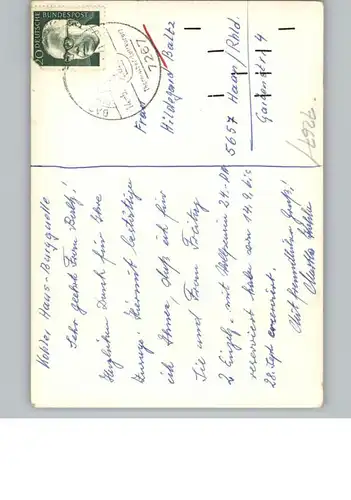 DEUTSCHE BUNDESPOST
20
7261
Frau
Hildegard Baltz
5657 Haan/Rhld.
Gartenstr. 4
Kohler, Haus-Burgquelle
Sehr geehrte Frau Baltz!
Herzlichen Dank für Ihre
Hiermit bestätige
ich Ihnen, daß ich für
Sie und Frau Freitag
2 Einzelz. mit Vollpension
reserviert habe von 14.9. bis
28. Sept.
Mit freundlichem Gruß!